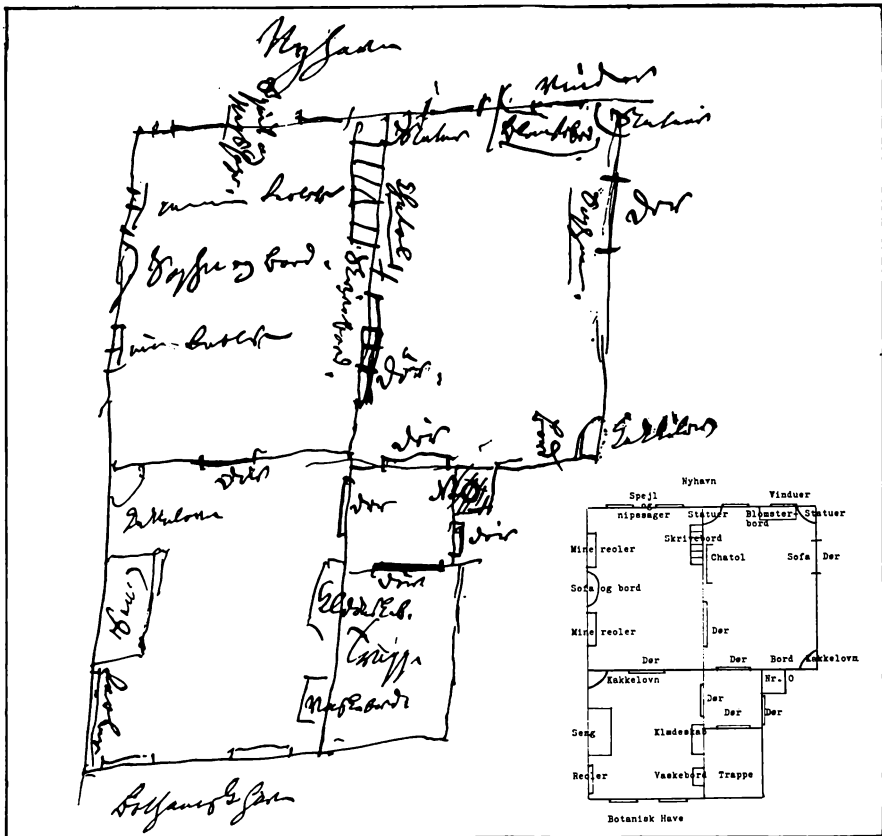 Nyhavn
Spejl og
nipssager
Vinduer
Statue
Blomsterbord
Statue
reoler
Chatol
Sofa
Dør
Sofa og bord.
Skrivebord.
reoler
Dör.
Bord
Kakkelovn
Dör
Dör
Kakkelovn
Dör
Nr 0
Dör
Dör
Seng
Klædeskab.
Trappe
Reoler
Vaskebord
Botanisk Have
Nyhavn
Spejl Vinduer
og
nipssager Statuer Blomster- Statuer
bord
Skrivebord
Mine reoler Chatol Sofa Dør
Sofa og bord
Mine reoler Dør
Dør Dør Bord Kakkelovn
Kakkelovn Nr. O
Dør
Dør Dør
Seng Klædeskab
Reoler Vaskebord Trappe
Botanisk Have